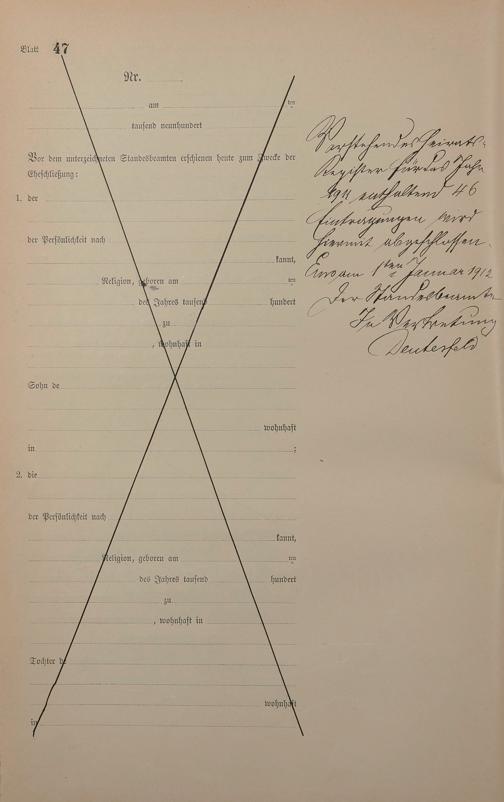 Blatt 47
Nr.
am ten
tausend neunhundert
Vor dem unterzeichneten Standesbeamten erschienen heute zum Zwecke der
Eheschließung:
1. der
der Persönlichkeit nach
kannt,
Religion, geboren am ten
des Jahres tausend hundert
zu
, wohnhaft in
Sohn de
wohnhaft
in ;
2. die
der Persönlichkeit nach
kannt,
Religion, geboren am ten
des Jahres tausend hundert
zu
, wohnhaft in
Tochter de
wohnhaft
in
Vorstehendes Heirats-
Register für das Jahr
1911 enthaltend 46
Eintragungen wird
hiermit abgeschlossen.
am 1ten Januar 1912
Der Standesbeamte
In Vertretung